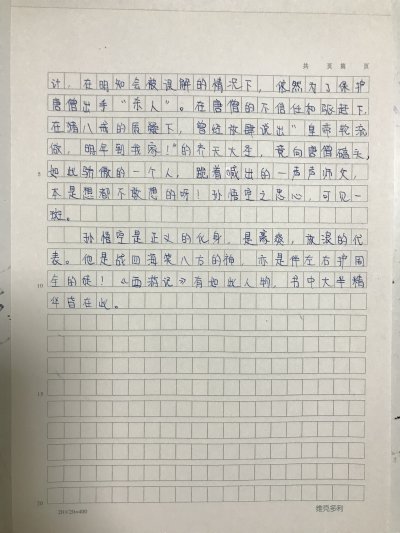 共 页 第 页
计，在明知会被误解的情况下，依然为了保护
唐僧出手“杀人”。在唐僧的不信任和驱赶下，
在猪八戒的质疑下，曾经放肆说出“皇帝轮流
做！明年到我家！”的齐天大圣，竟向唐僧磕头，
5
如此骄傲的一个人，跪着喊出的一声声师父，
本是想都不敢想的呀！孙悟空之忠心，可见一
斑。
孙悟空是正义的化身，是豪爽，放浪的代
表。他是战四海笑八方的神，亦是伴左右护周
10
全的徒！《西游记》有如此人物，书中大半精
华皆在此。
15
20
20×20=400
维克多利